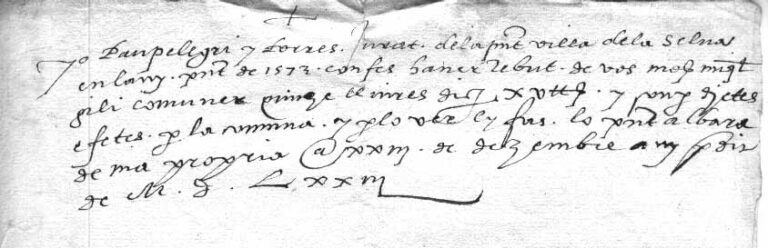 Yo Paupelegri y torres. Jurat. dela pnt villa dela Selva
en lany. pnt de 1573. confes haver rebut. de vos
gili comuner quinze lliures dic y
e fetes. p la comuna. y plo ver ly fas. lo pnt albara
de ma propria @ xxiij. de dezembre any pdit
de M. D. Lxxiij